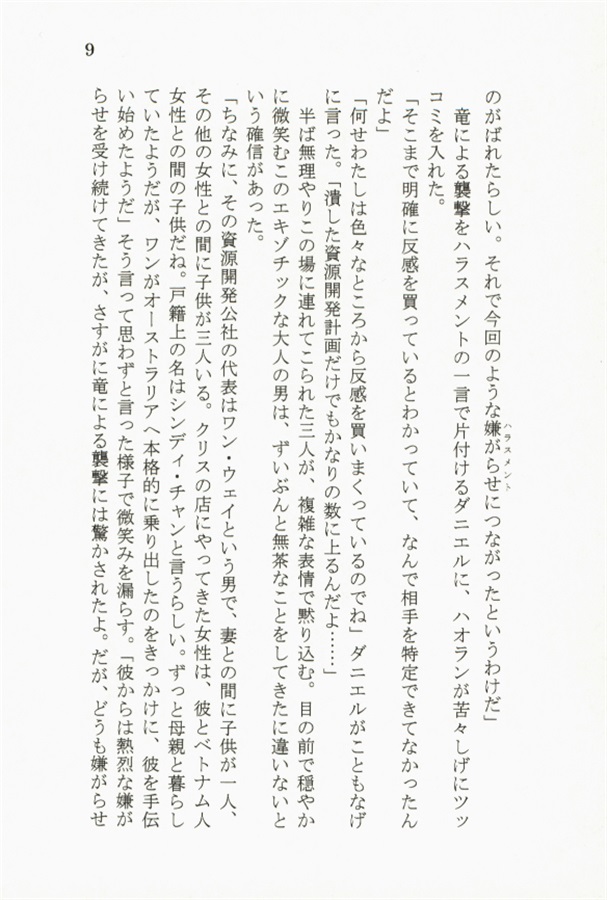 9
のがばれたらしい。それで今回のような嫌がらせにつながったというわけだ」
ハラスメント
　竜による襲撃をハラスメントの一言で片付けるダニエルに、ハオランが苦々しげにツッ
コミを入れた。
「そこまで明確に反感を買っているとわかっていて、なんで相手を特定できてなかったん
だよ」
「何せわたしは色々なところから反感を買いまくっているのでね」ダニエルがこともなげ
に言った。「潰した資源開発計画だけでもかなりの数に上るんだよ……」
　半ば無理やりこの場に連れてこられた三人が、複雑な表情で黙り込む。目の前で穏やか
に微笑むこのエキゾチックな大人の男は、ずいぶんと無茶なことをしてきたに違いないと
いう確信があった。
「ちなみに、その資源開発公社の代表はワン・ウェイという男で、妻との間に子供が一人、
その他の女性との間に子供が三人いる。クリスの店にやってきた女性は、彼とベトナム人
女性との間の子供だね。戸籍上の名はシンディ・チャンと言うらしい。ずっと母親と暮らし
ていたようだが、ワンがオーストラリアへ本格的に乗り出したのをきっかけに、彼を手伝
い始めたようだ」そう言って思わずと言った様子で微笑みを漏らす。「彼からは熱烈な嫌が
らせを受け続けてきたが、さすがに竜による襲撃には驚かされたよ。だが、どうも嫌がらせ